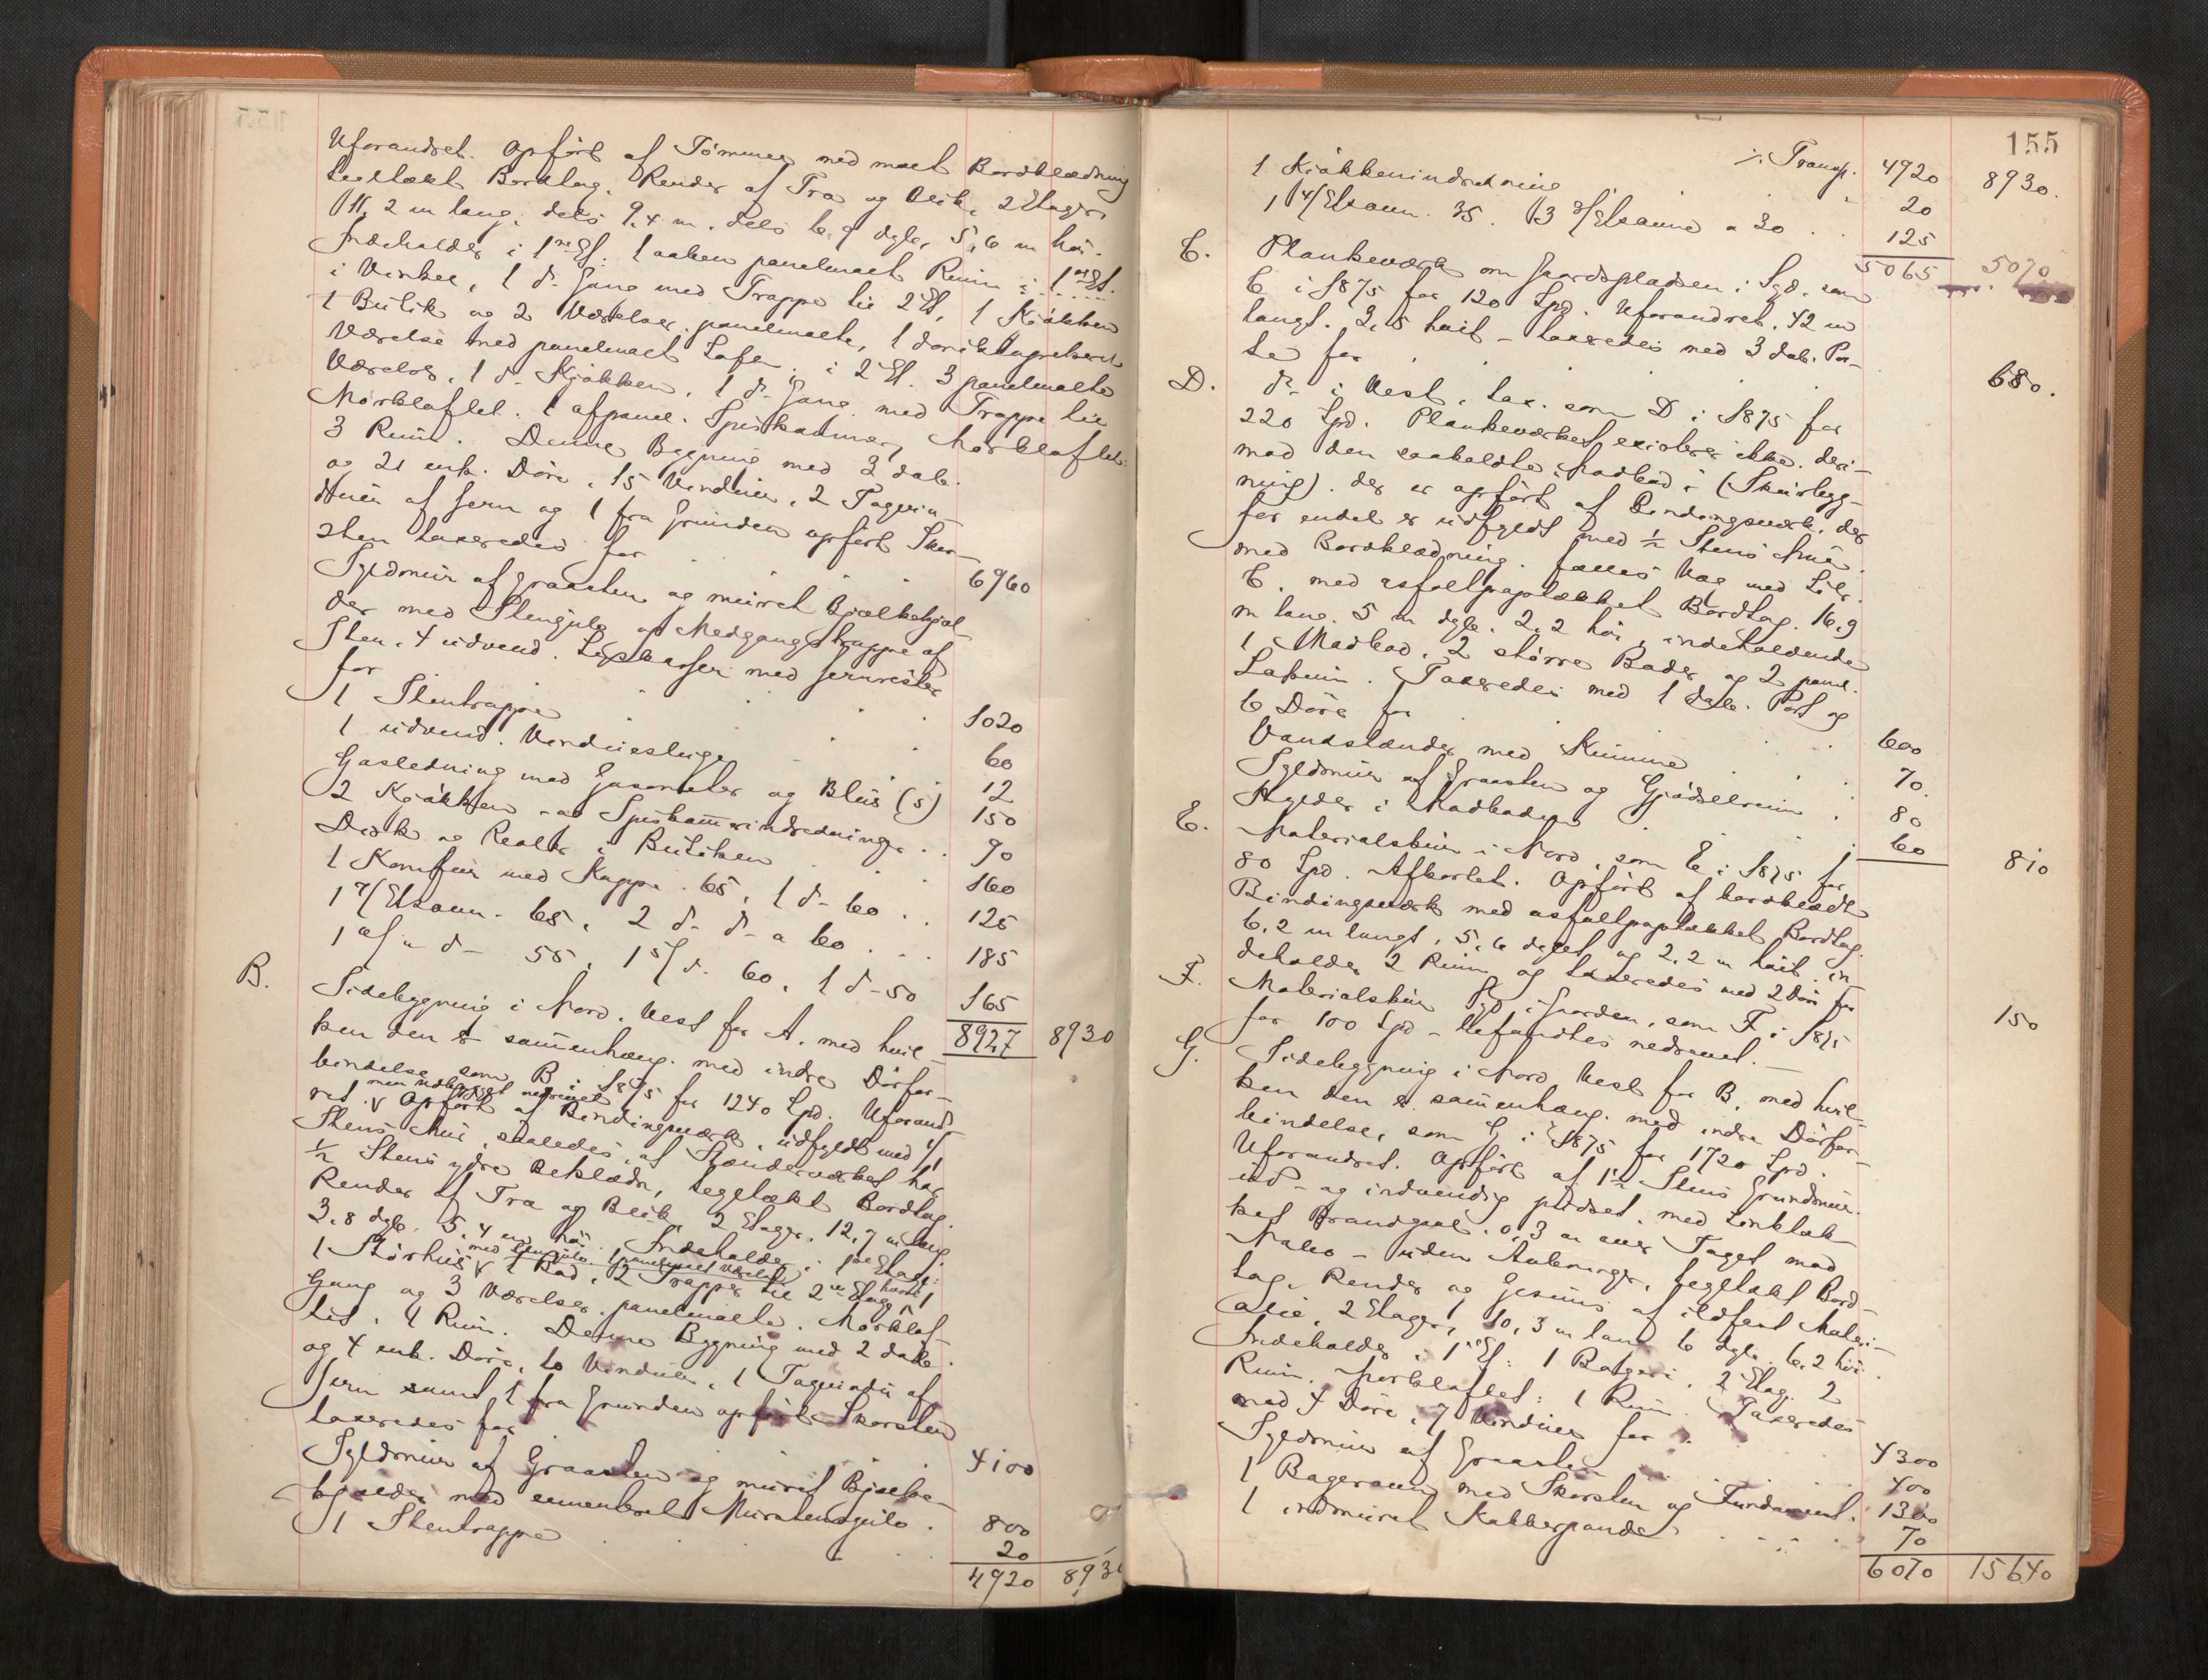 Uforandret. Opført af Tömmer med malt Bordklædning
tegltækt Bordtag. Render af Træ og Blik. 2 Etager,
11,2 m lang, dels 9,4 m. dels 6,9 dyb, 5,6 m høi.
Indeholder i 1ste Et. 1 aaben panelmalt Rum
i Vinkel, 1 do Gang med Trappe til 2 Et. 1 Kjøkken
1 Butik og 2 Værelser panelmalte, 1 do
Værelse med panelmalt Loft. i 2 Et. 3 panelmalte
Værelser, 1 do Kjøkken, 1 do Gang med Trappe til
Mørkloftet. 1 afpanel. Spiskammer, Mørkloftet:
3 Rum. Denne Bygning med 3 dob.
og 21 enk. Döre, 15 Vinduer, 2 Tagvin-
duer af Jern og 1 fra Grunden opført Skor-
sten taxeredes for 6960
Syldmur af Graasten og muret Bjælkekjæl-
der med Stengulv og Nedgangstrappe af
Sten, 4 udvend. Lyskasser med Jernrister
for 1020
1 Stentrappe 60
1 udvend. Vinduesluge 12
Gasledning med Gasometer og Blus (5) 150
2 Kjøkken- og Spiskammerindredninger 90
Disk og Reoler i Butiken 160
1 Komfur med Kappe 65, 1 do 60 125
1 7/Etsovn 65, 2 do do a 60 185
1 do 55, 1 5/ do 60, 1 do 50 165
8927 8930
B. Sidebygning i Nord. Vest for A. med hvil-
ken den er sammenhæng. med indre Dörfor-
bindelse som B i 1875 for 1240 Spd. Uforand-
ret. Opført af Bindingsværk, udfyldt med 1/1
Stens Mur, saaledes at Stænderværket har
½ Stens ydre Beklædn, teglt­ækt Bordtag.
Render af Træ og Blik, 2 Etager, 12,7 m lang,
3,8 dyb, 5,4 m høi. Indeholder i 1ste Etage:
med Stengulv 1 panelmalt Værelse
1 Størhus 1 Bad, 2 Trapper til 2den Etage, hvori 1
Gang og 3 Værelser panelmalte. Mørklof-
tet, 4 Rum. Denne Bygning med 2 dob.
og 4 enk. Döre, 10 Vinduer, 1 Tagvindu af
Jern samt 1 fra Grunden opført Skorsten
taxeredes for 4100
Syldmur af Graasten og muret Bjælke-
kjælder med cementeret Murstensgulv 800
1 Stentrappe 20
4920 8930
155
./. Transp. 4920 8930.
1 Kjøkkenindredning 20
1 4/Etsovn 35. 3 3/Etsovne a 30 125
5065 5070
C. Plankeværk om Gaardspladsen i Syd, som
C i 1875 for 120 Spd. Uforandret. 42 m
langt. 3,5 høit - taxeredes med 3 dob. Por-
te for 680.
D. do i Vest, tax. som D i 1875 for
220 Spd. Plankeværket existerer ikke, deri-
mod den saakaldte Madbod i (Skurbyg-
ning). der er opført af Bindingsværk, der
for endel er udfyldt med ½ Stens Mur.
med Bordklædning. fælles Væg med Litr.
C. med asfaltpaptækket Bordtag. 16,9
m lang. 5 m dyb. 2,2 høi, indeholdende
1 Madbod, 2 større Boder og 2 panel.
Latrin. Taxeredes med 1 dob. Port og
6 Döre for 600
Vandstænder med Kumme 70.
Syldmur af Graasten og Gjødselrum 80
Hylder i Madboden 60 810
E. Materialskur i Nord, som E i 1875 for
80 Spd. Afkortet. Opført af bordklædt
Bindingsværk med asfaltpaptækket Bordtag.
6,2 m langt, 5,6 dybt og 2,2 m høit. in-
deholder 2 Rum og taxeredes med 2 Döre for 150
F. Materialskur Syd i Gaarden, som F i 1875
for 100 Spd - befandtes nedrevet.
G. Sidebygning i Nord Vest for B, med hvil-
ken den er sammenhæng. med indre Dörfor-
bindelse, som G i 1875 for 1720 Spd.
Uforandret. Opført af 1½ Stens Grundmur.
ud- og indvendig pudset, med tæk-
ket Brandgavl. 0,3 m over Taget mod
Nabo - uden Aabninger, tegltækt Bord-
tag. Render og Gesims af ildfast Materi-
ale, 2 Etager, 10,3 m lang 6 dyb. 6,2 høi.
Indeholder i 1ste Et: 1 Bageri, 2 Etag. 2
Rum. Mørkloftet: 1 Rum. Taxeredes
med 4 Döre, 7 Vinduer for 4300
Syldmur af Graasten 400
1 Bagerovn med Skorsten og Fundament 1300
1 indmuret Kobberpande 70
6070 15640